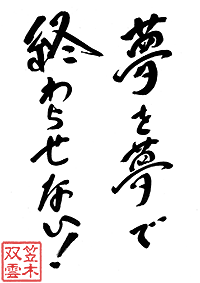 夢を夢で
終わらせない!
笠木
双雲